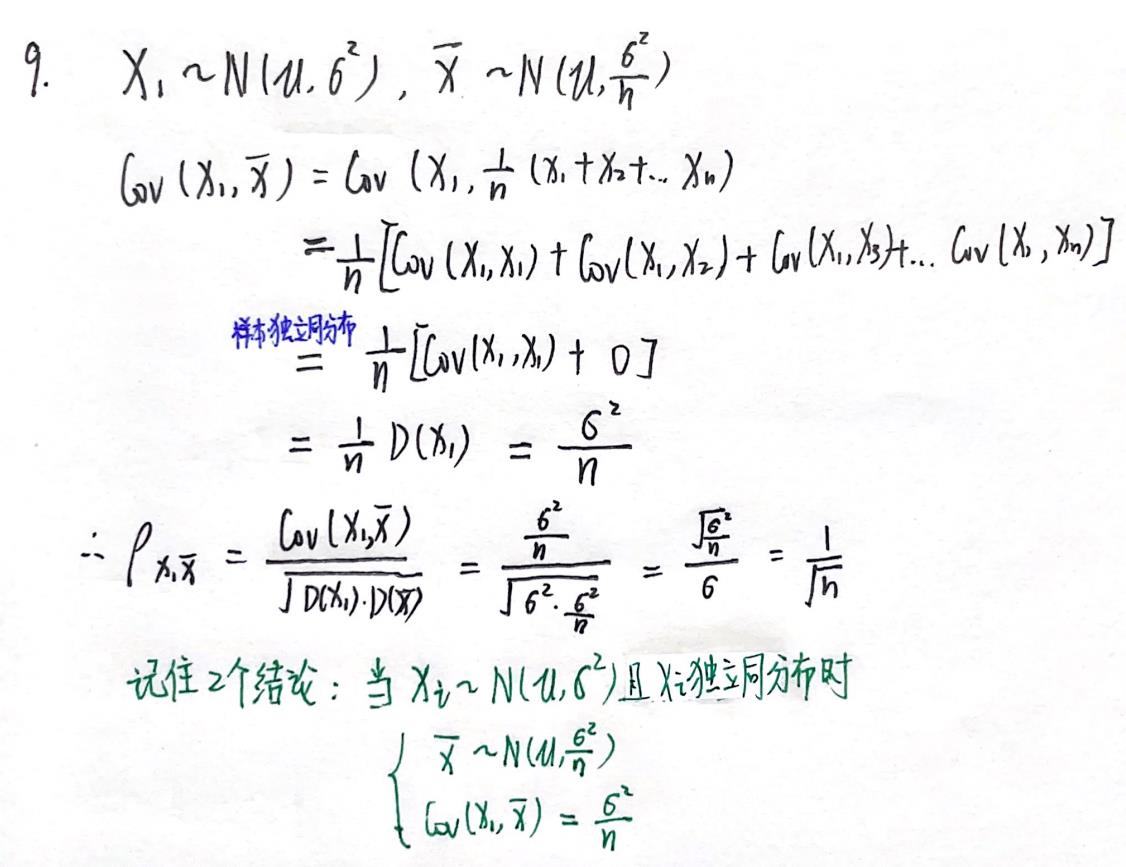 9. X₁ ~ N(μ, σ²), X̄ ~ N(μ, σ²/n)
Cov(X₁, X̄) = Cov(X₁, 1/n (X₁+X₂+... Xₙ)
= 1/n [Cov(X₁,X₁) + Cov(X₁,X₂) + Cov(X₁,X₃)+... Cov(X₁,Xₙ)]
样本独立同分布
= 1/n [Cov(X₁,X₁) + 0]
= 1/n D(X₁) = σ²/n
∴ ρ X₁X̄ = Cov(X₁,X̄)/√(D(X₁)·D(X̄)) = (σ²/n)/√(σ²·σ²/n) = √(σ²/n)/σ = 1/√n
记住2个结论: 当 Xᵢ ~ N(μ,σ²)且Xᵢ独立同分布时
{ X̄ ~ N(μ, σ²/n)
Cov(X₁, X̄) = σ²/n